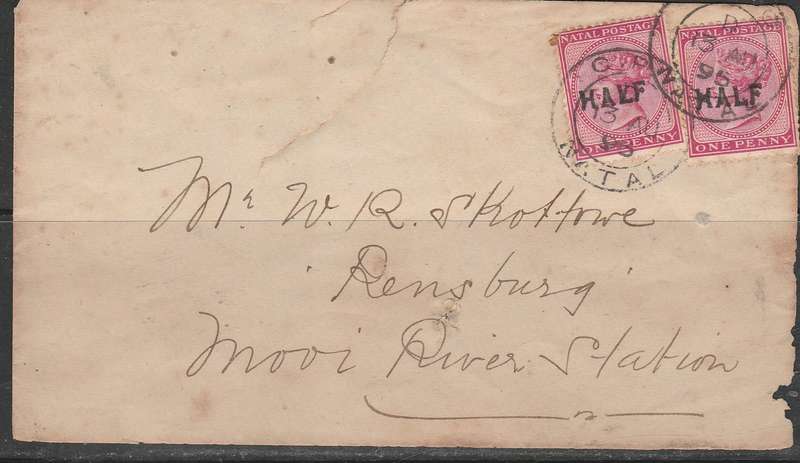 NATAL POSTAGE NATAL POSTAGE
HALF HALF
ONE PENNY ONE PENNY
G.P.O. NATAL
95
13
NATAL
Mr W. R. Skottowe
'Rensburg'
Mooi River Station